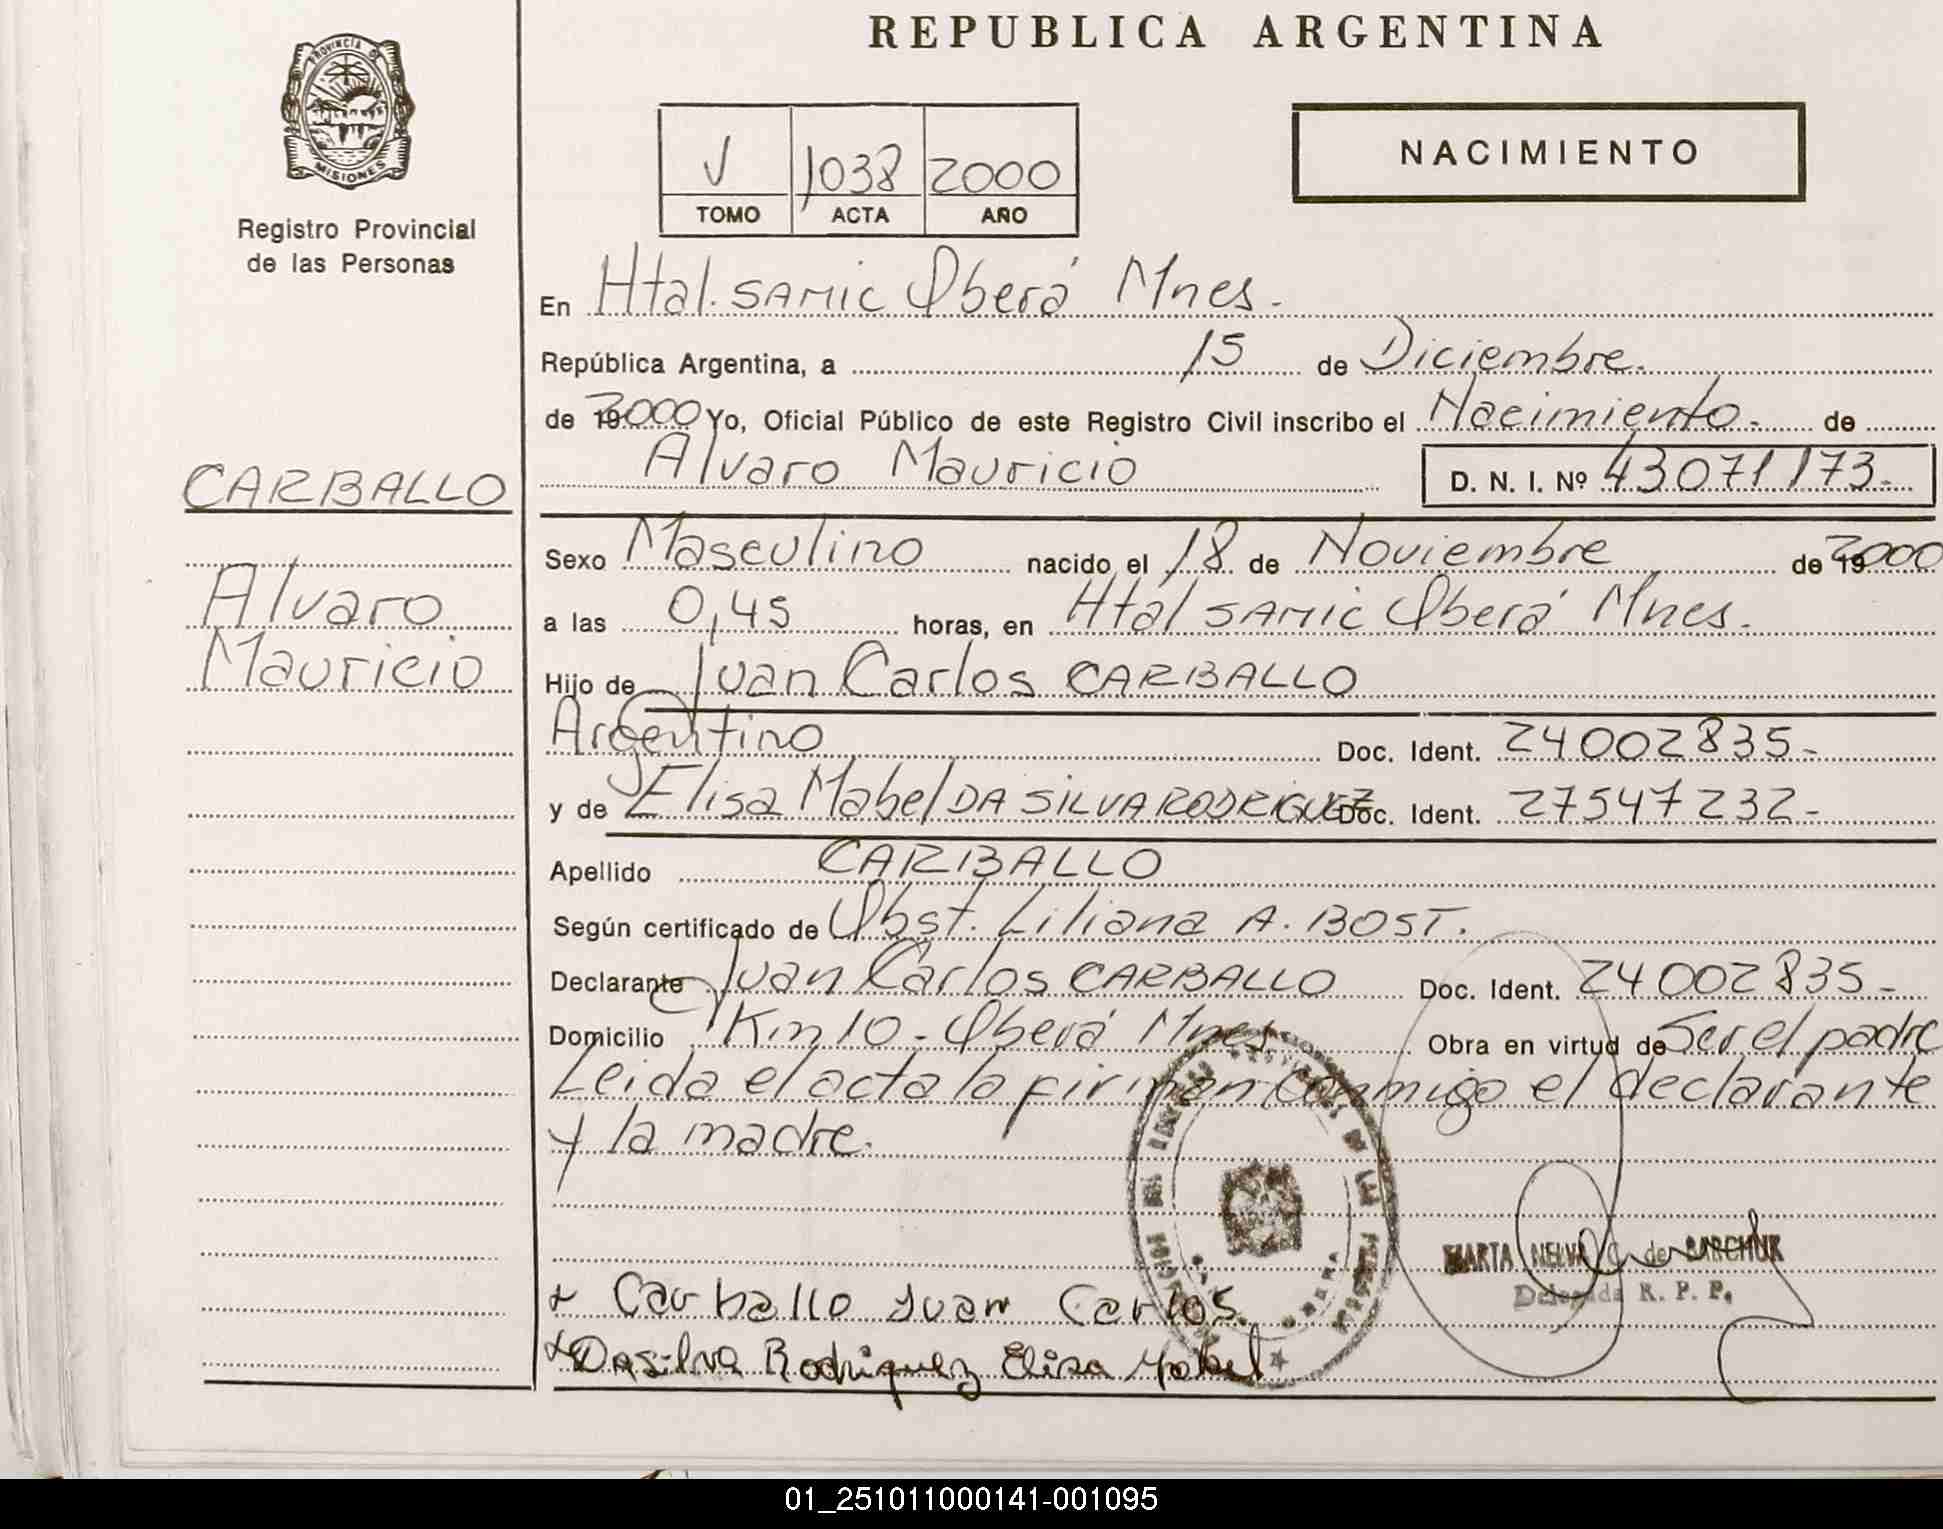 REPUBLICA ARGENTINA
PROVINCIA DE
MISIONES
Registro Provincial
de las Personas
V 1038 2000
TOMO ACTA AÑO
NACIMIENTO
En Htal. SAMIC Oberá Mnes.
República Argentina, a 15 de Diciembre.
de 192000 Yo, Oficial Público de este Registro Civil inscribo el Nacimiento. de
Alvaro Mauricio D. N. I. Nº 43071173.-
CARBALLO
Alvaro
Mauricio
Sexo Masculino nacido el 18 de Noviembre de 192000
a las 0,45 horas, en Htal SAMIC Oberá Mnes.
Hijo de Juan Carlos CARBALLO
Argentino Doc. Ident. 24002835-
y de Elisa Mabel DA SILVA RODRIGUEZ Doc. Ident. 27547232-
Apellido CARBALLO
Según certificado de Obst. Liliana A. BOST.
Declarante Juan Carlos CARBALLO Doc. Ident. 24002835-
Domicilio Km 10 - Oberá Mnes Obra en virtud de Ser el padre
Leida el acta la firman conmigo el declarante
y la madre.
MARTA NELVA C. de
Delegada R. P. P.
Carballo Juan Carlos.
Dasilva Rodriguez Elisa Mabel
01_251011000141-001095